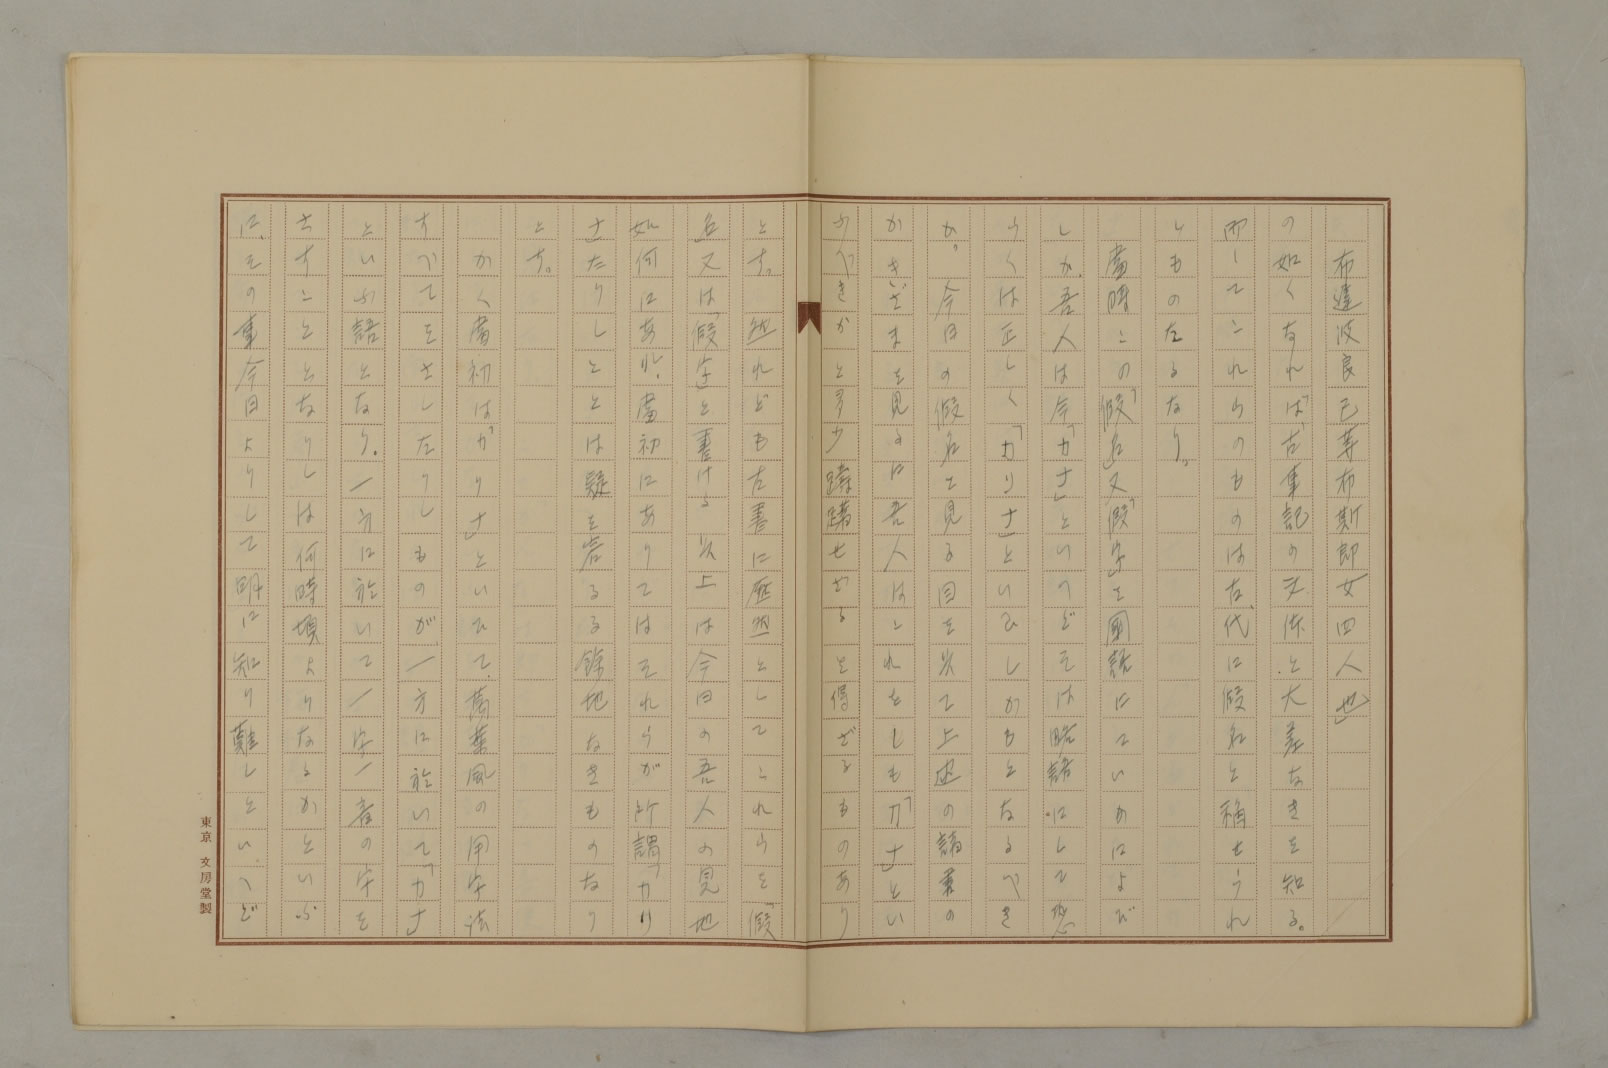 布達波良已等布斯郎女四人也」
の如くなれば、古事記の文体と大差なきを知る。
而してこれらのものは古代に假名と稱せられ
しものなるなり。
當時この「假名」又「假字」を國語にていかによび
しか、吾人は今「カナ」といへどそは略語にして恐
らくは正しく「カリナ」といひしかもとなるべき
か。今日の假名を見る目を以て上述の諸書の
かきざまを見るに吾人はこれをしも「カナ」とい
ふべきかと多少躊躇せざるを得ざるものあり
とす。然れども古書に歴然としてこれらを「假
名」又は「假字」と書ける以上は今日の吾人の見地
如何にあれ、當初にありてはそれらが所謂「カリ
ナ」たりしことは疑を容るる餘地なきものなり
とす。
かく當初は「カリナ」といひて、萬葉風の用字法
すべてをさしたりしものが、一方に於いて「カナ」
といふ語となり。一方に於いて一字一音の字を
さすこととなりしは何時頃よりなるかといふ
に、その事今日よりして明に知り難しといへど
東京 文房堂製